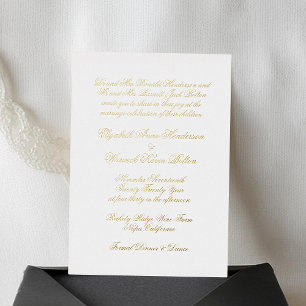 Mr and Mrs Ronald Henderson and
Mr and Mrs Darnell Jack Bolton
invite you to share in their joy at the
marriage celebration of their children
Elizabeth Anne Henderson
&
Warwick Kevin Bolton
November Seventeenth
Twenty Twenty
at four thirty in the afternoon
Ridge Wine Farm
Napa California
Formal Dinner & Dance